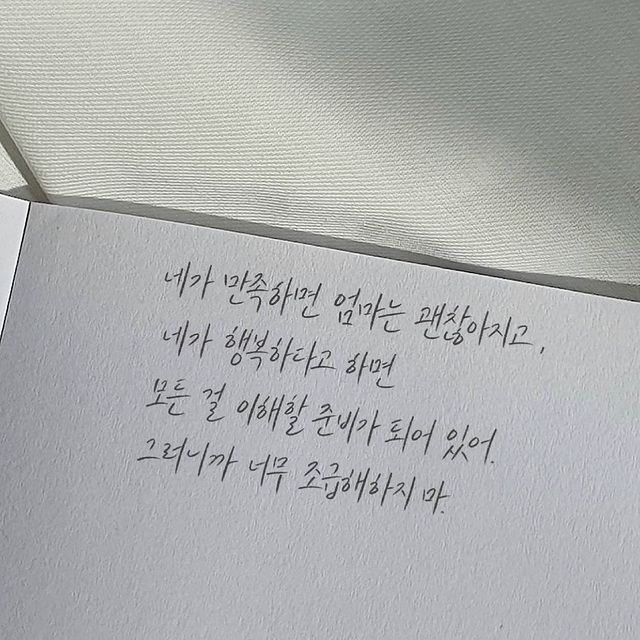 네가 만족하면 엄마는 괜찮아지고,
네가 행복하다고 하면
모든 걸 이해할 준비가 되어 있어.
그러니까 너무 조급해하지 마.